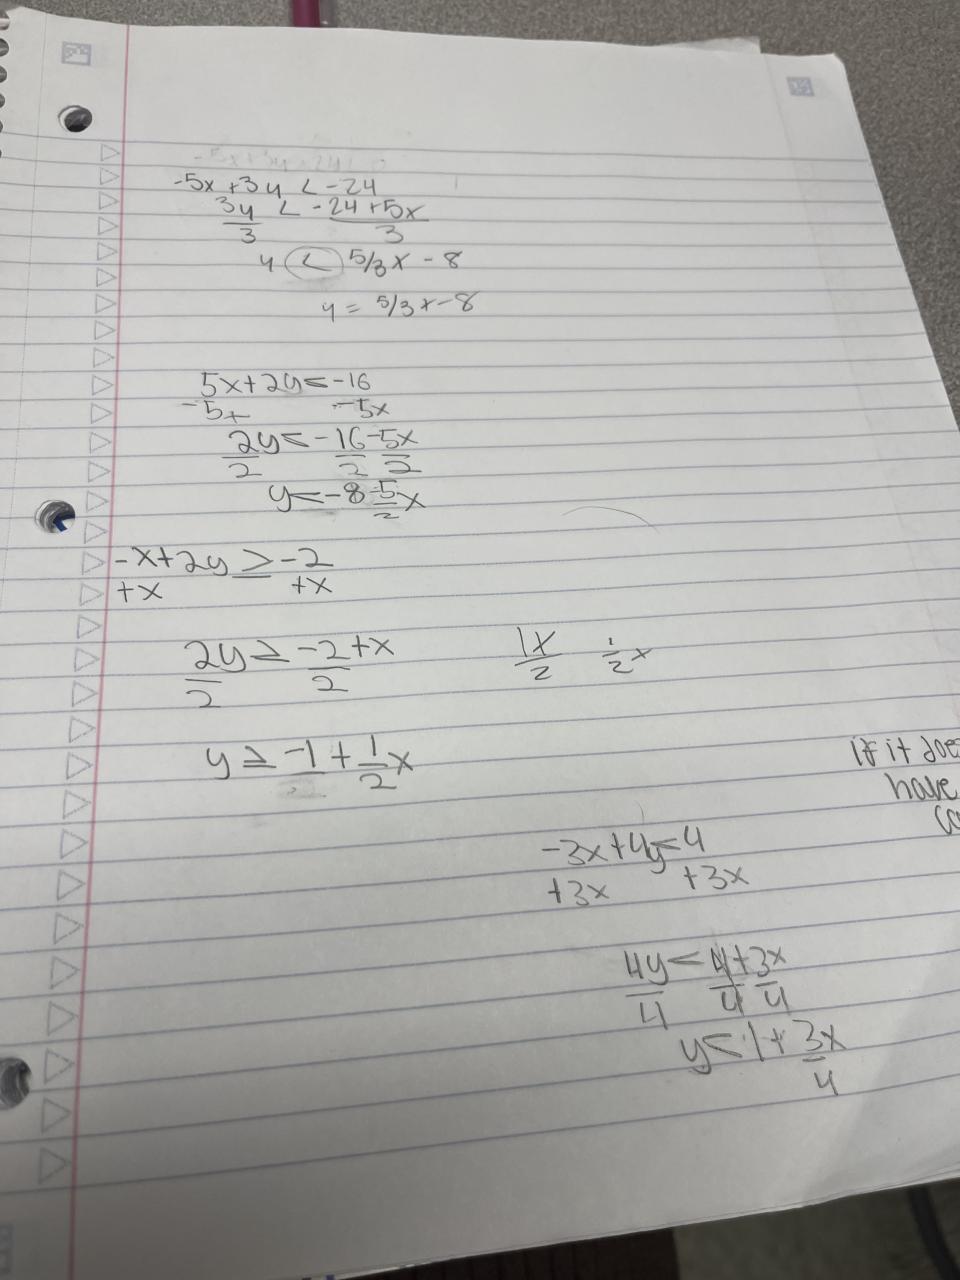 -5x+3y<-24
3y < -24+5x
3 3
y < 5/3x - 8
y = 5/3x-8
5x+2y<-16
-5x -5x
2y<-16-5x
2 2 2
y<-8 5/2 x
-x+2y≥-2
+x +x
2y≥-2+x
2 2
1x/2 1/2 x
y≥-1+1/2 x
if it does
have
-3x+4y<4
+3x +3x
4y<4+3x
4 4 4
y<1+3x/4